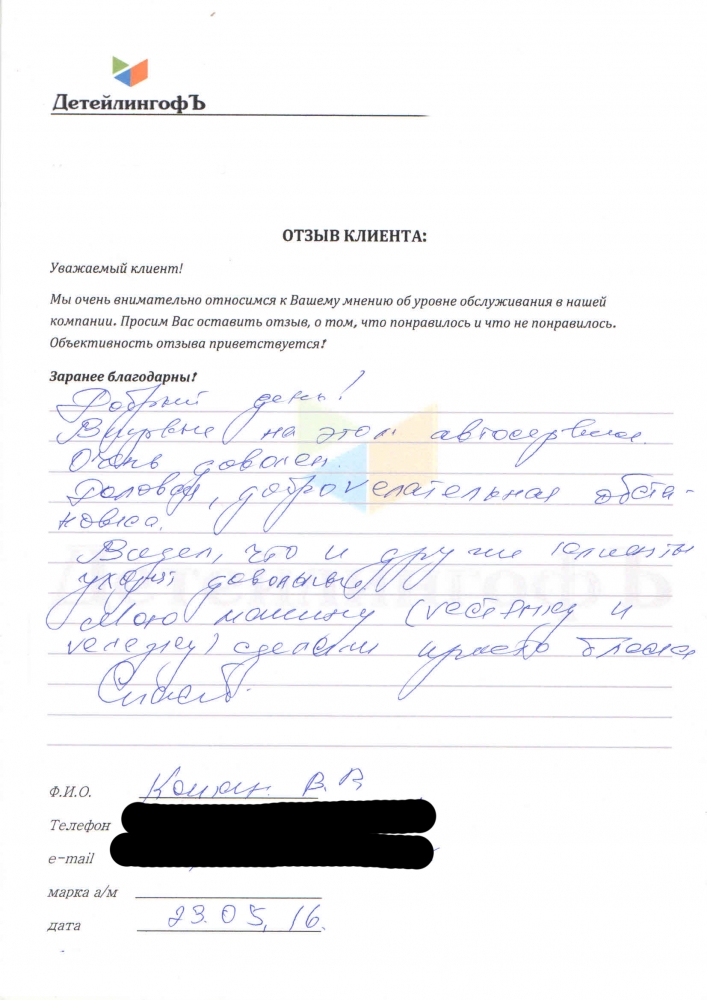 ДетейлингофЪ
ОТЗЫВ КЛИЕНТА:
Уважаемый клиент!
Мы очень внимательно относимся к Вашему мнению об уровне обслуживания в нашей
компании. Просим Вас оставить отзыв, о том, что понравилось и что не понравилось.
Объективность отзыва приветствуется!
Заранее благодарны!
Добрый день!
Впервые на этом автосервисе.
Очень доволен.
Деловая, доброжелательная обста-
новка.
Видел, что и другие клиенты
уходят довольные.
Мою машину (чистку и
) сделали просто блеск
Спасибо.
Ф.И.О. В.В.
Телефон
e-mail
марка а/м
дата 23.05.16.